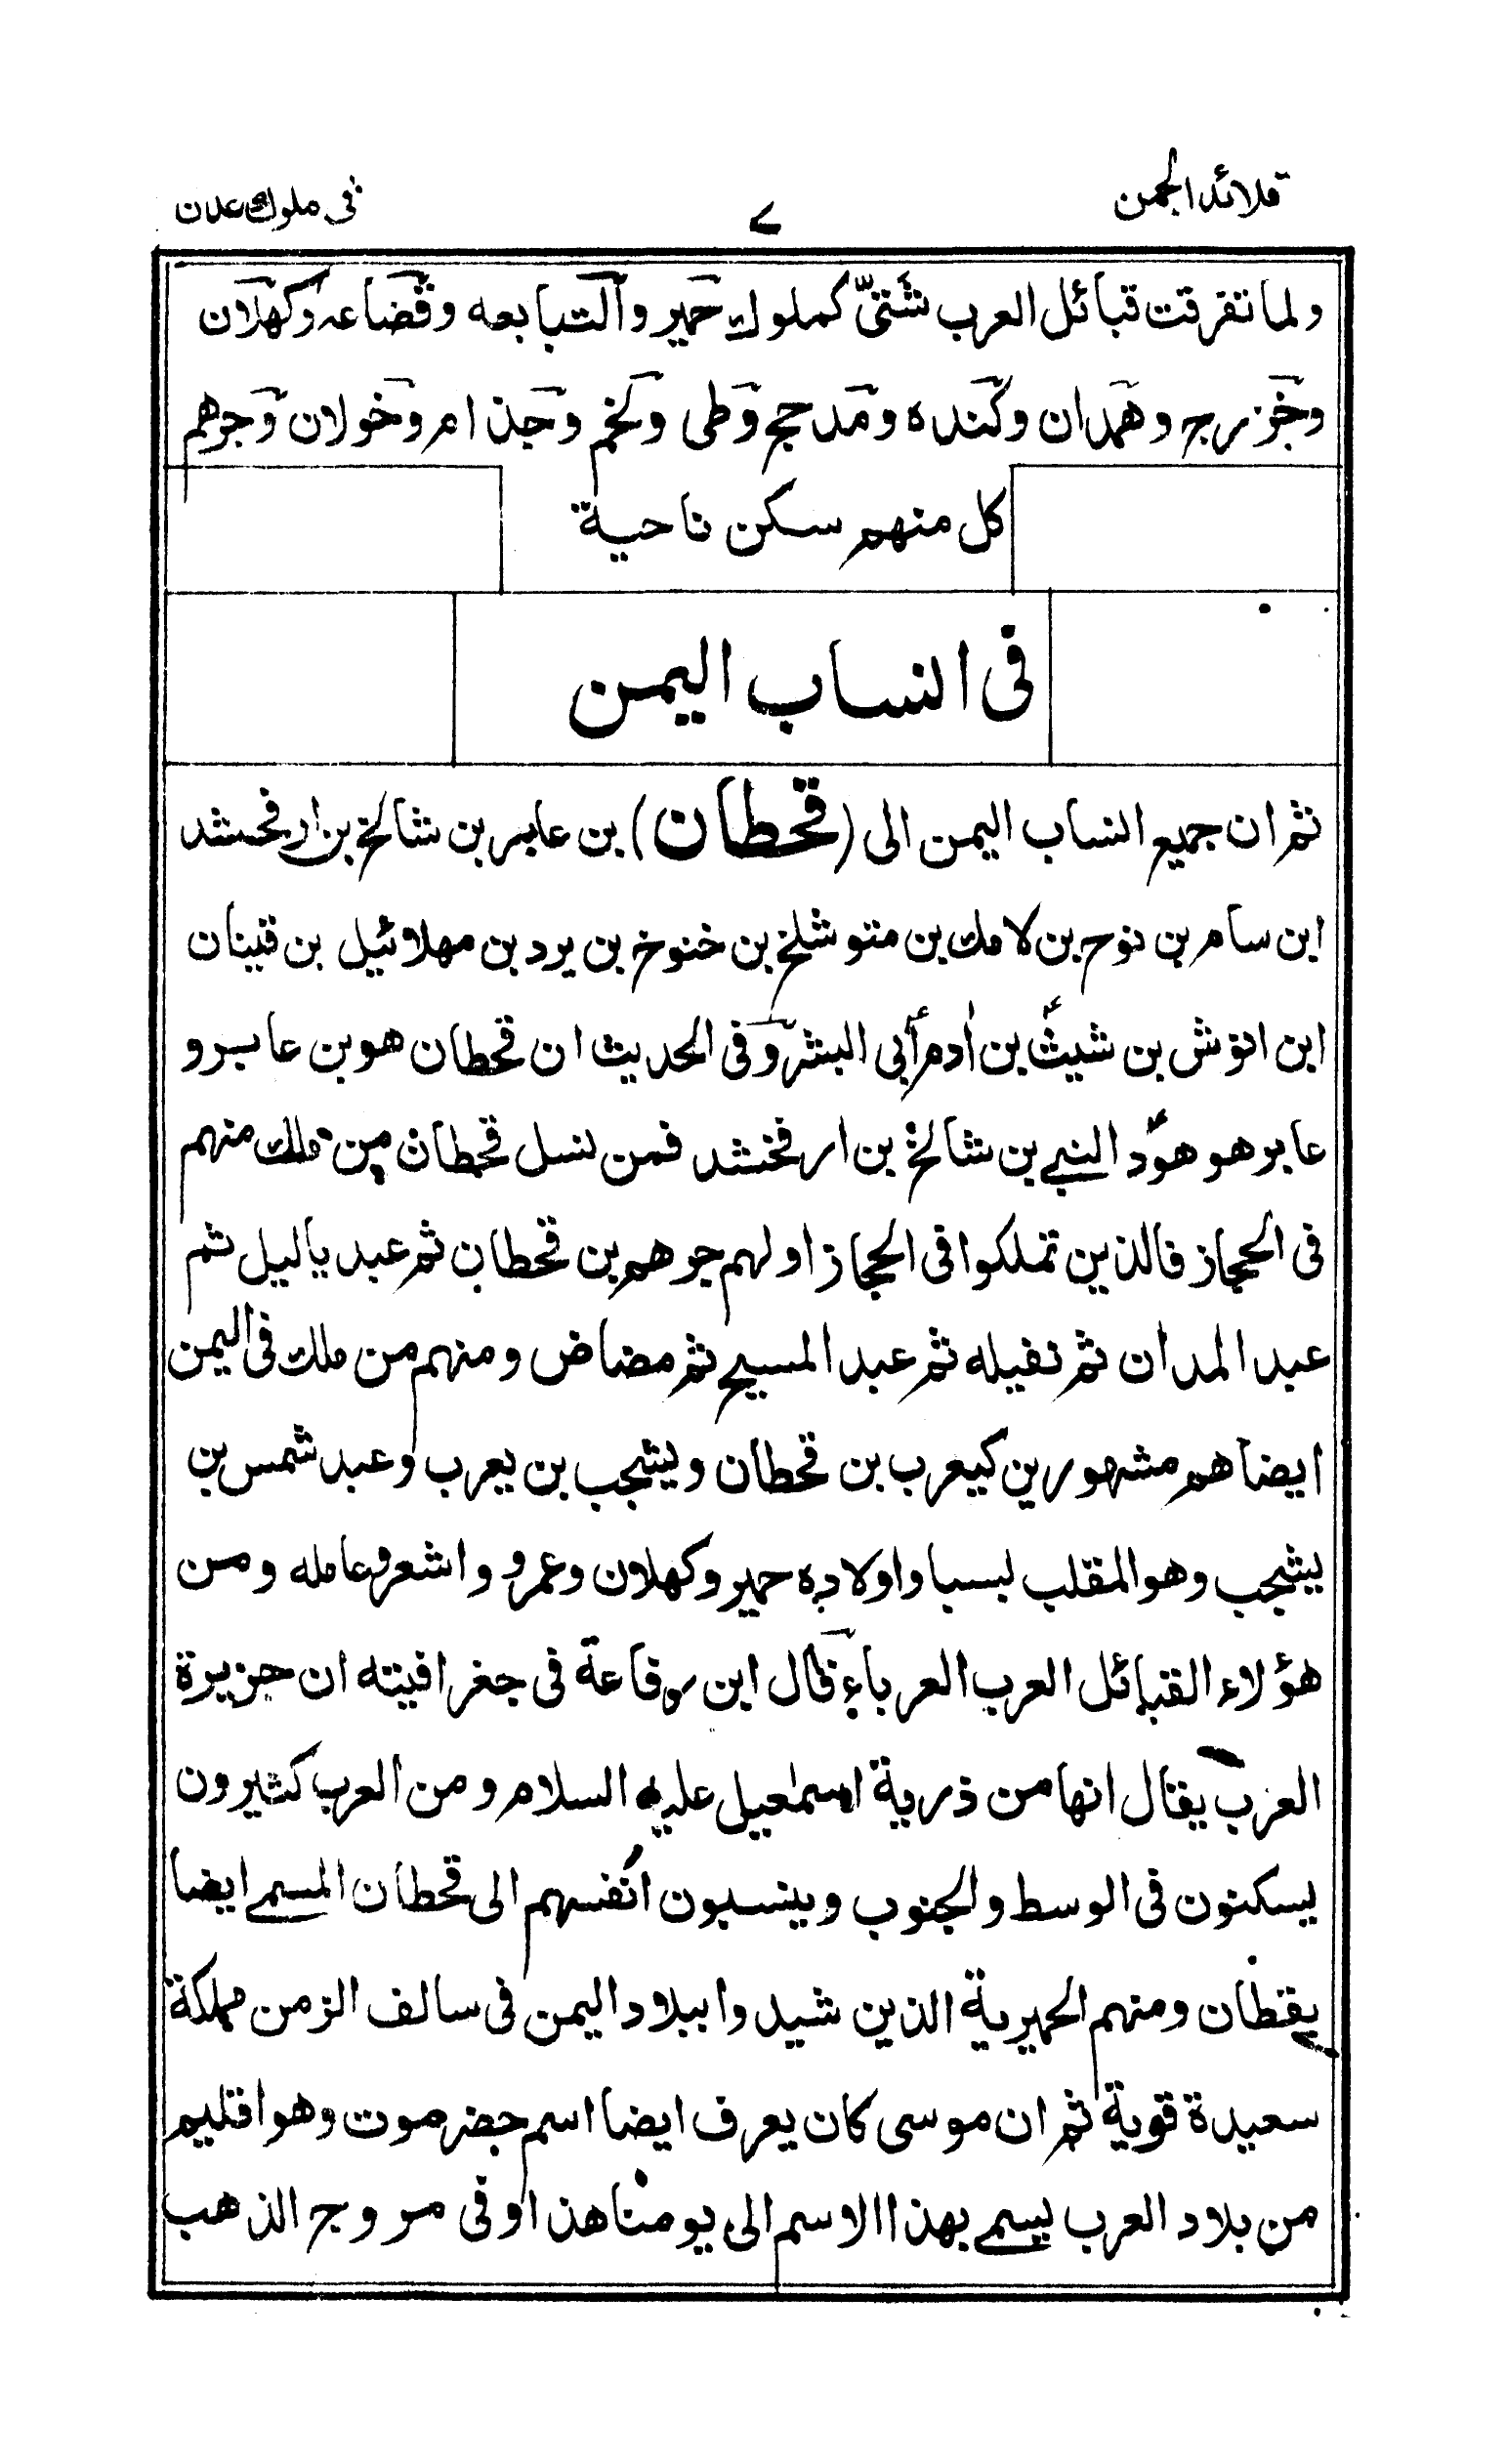 قلائد الجمن
٧
فى ملوك عدن
ولما تفرقت قبائل العرب شتىّ كملوك حمير والتبابعه وقضاعه وكهلان
وخزرج وهمدان وكنده ومدحج وطى ولخم وجذام وخولان وجرهم
كل منهم سكن ناحية
فى انساب اليمن
ثم ان جميع انساب اليمن الى (قحطان) بن عابر بن شالخ بن ارفحشد
ابن سام بن نوح بن لامك بن متوشلخ بن خنوخ بن يرد بن مهلائيل بن قينان
ابن انوش بن شيث بن أدم أبى البشر وفى الحديث ان قحطان هو بن عابر و
عابر هو هود النبى بن شالخ بن ارفخشد فمن نسل قحطان من ملك منهم
فى الحجاز فالذين تملكوا فى الحجاز اولهم جرهم بن قحطان ثم عبد ياليل ثم
عبد المدان ثم نفيله ثم عبد المسيح ثم مضاض ومنهم من ملك فى اليمن
ايضا هم مشهورين كيعرب بن قحطان ويشجب بن يعرب وعبد شمس بن
يشجب وهو المقلب بسبا واولاده حمير وكهلان وعمرو واشعر وعامله ومن
هؤلاء القبائل العرب العرباء قال ابن رفاعة فى جغرافيته ان جزيرة
العرب يقال انها من ذرية اسمعيل عليه السلام ومن العرب كثيرون
يسكنون فى الوسط والجنوب وينسبون انفسهم الى قحطان المسمى ايضا
يقطان ومنهم الحميرية الذين شيدوا ببلاد اليمن فى سالف الزمن مملكة
سعيدة قوية ثم ان موسى كان يعرف ايضا اسم حضرموت وهو اقليم
من بلاد العرب يسمى بهذا الاسم الى يومنا هذا وفى مروج الذهب